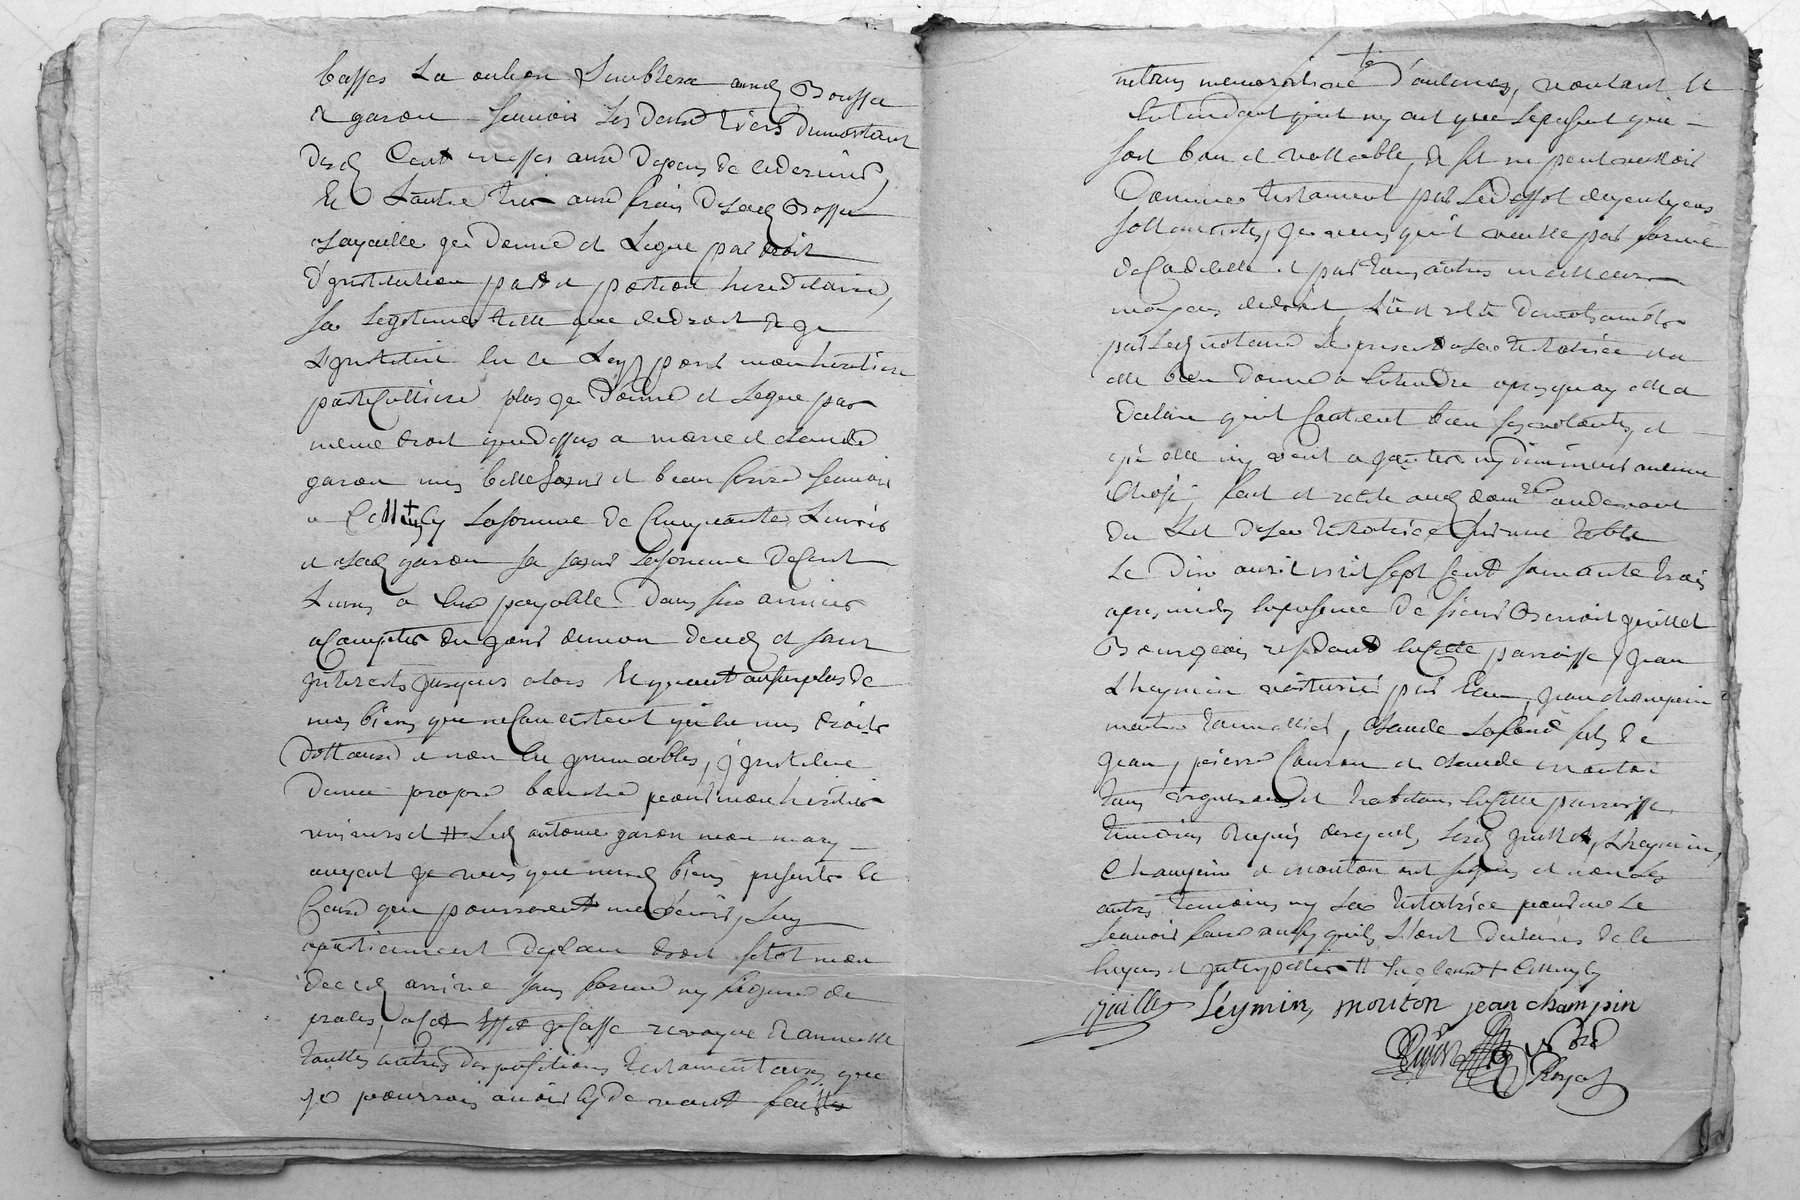 basses La
et garon Scavoir Les deux tiers du montant
desd Cent messes aux depens de ce dernier,
Et L'autre tier aux frais de lad Bosse
a laquelle je donne et Legue par droit
d'jnstitution part et portion hereditaire,
sa Legitime telle que de droit & je
L'jnstitue en ce Les pour mon heritiere
particulliere plus je donne et Legue par
meme droit que dessus a marie et claude
garon mes belle soeur et beau frere Scavoir
a La somme de Cinquante Livres
et a lad garon sa soeur La somme de Cent
Livres a eux payable dans six années
a Compter du jour de mon deced et sans
jnterests jusques alors Et quant au surplus de
mes biens que ne Consistent qu'en mes droits
dottaux et non en jmmeubles, j'jnstitue
de ma propre bouche pour mon heritier
universel # Led antoine garon mon mary
auquel je veux que mesd biens presents et
Ceux que pourroient me luy
apartiennent de plein droit sitot mon
deced arrivé sans forme ny figure de
procès, a cet Effet je Casse revoque et annulle
touttes autres dispositions testamentaires que
je pourrois avoir Cy de vant faittes
d'aulcunes, voulant Et
Entendant qu'il ny ait que le present qui
soit bon et vallable, & s'il ne peut valloir
Comme testament par Le deffot de quelques
sollemnités, je veux qu'il vaille par forme
de Codicille et par tous autres meilleurs
moyens de droit, Lû et relû
par Led notaire Le present a lad testatrice
elle bien donné a Entendre apres quoy elle a
declaré qu'il Contient bien ses volontés, et
qu'elle ny veut ajouter ny diminuer aucune
Chose; fait et recité aud dom.lle au devant
du Lit de lad testatrice sur une table
Le dix avril mil sept Cent soixante trois
apres midy En presence de sieur Benoit guillet
Bourgeois resident En cette parroisse, jean
Lheymin voiturier par Eau, jean champin
maitre tonnellier, claude Lafond fils de
jean, pierre Couron et claude mouton
tous vignerons et habitans En cette parroisse
temoins requis desquels Lesd guillet, Lheymin,
Champin et mouton ont signés et non Les
autres temoins ny Lad testatrice pour ne Le
scavoir faire ainsy quils L'ont declarés de ce
Enquis et jnterpellés #
Léymin, mouton jean champin
Royal